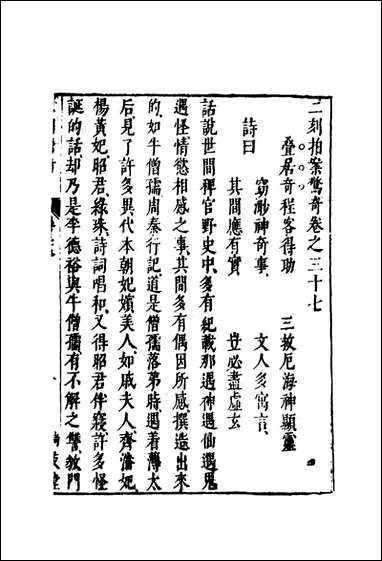 二刻拍案驚奇卷之三十七
疊居奇程客得助　三救厄海神顯靈
詩曰
窈渺神奇事　文人多寓言
其間應有實　豈必盡虛玄
話說世間稗官野史中多有紀載那遇神遇仙遇鬼
遇怪情慾相感之事其間多有偶因所感撰造出來
的如牛僧孺周秦行記道是僧孺落第時遇着薄太
后見了許多異代本朝妃嬪美人如戚夫人齊潘妃
楊貴妃昭君綠珠詩詞唱和又得昭君伴寢許多怪
誕的話却乃是李德裕與牛僧孺有不解之讐教門